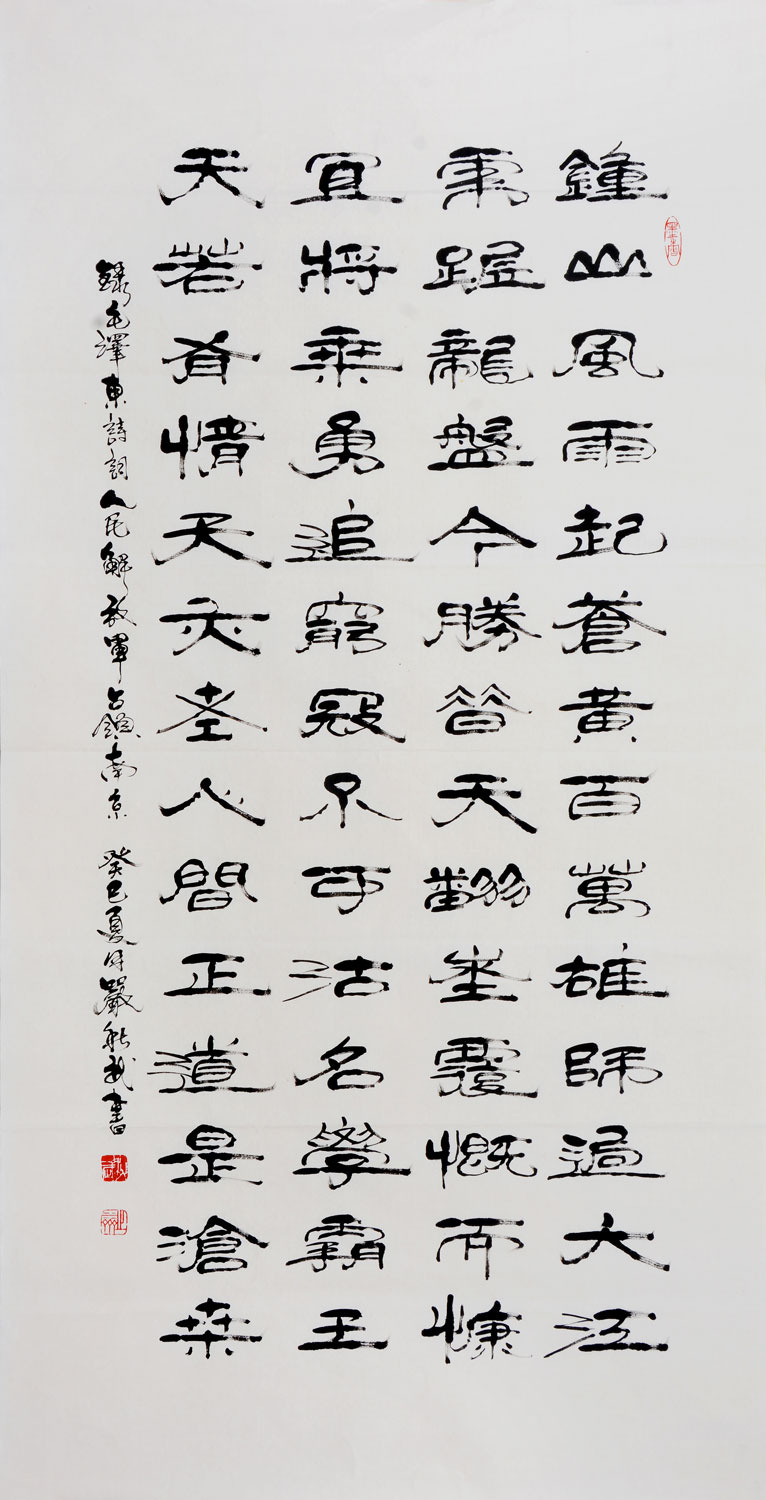 鍾山風雨起蒼黃百萬雄師過大江
虎踞龍盤今勝昔天翻地覆慨而慷
宜將乘勇追窮寇不可沽名學霸王
天若有情天亦老人間正道是滄桑
錄毛澤東詩詞人民解放軍占領南京 癸巳夏嚴武書